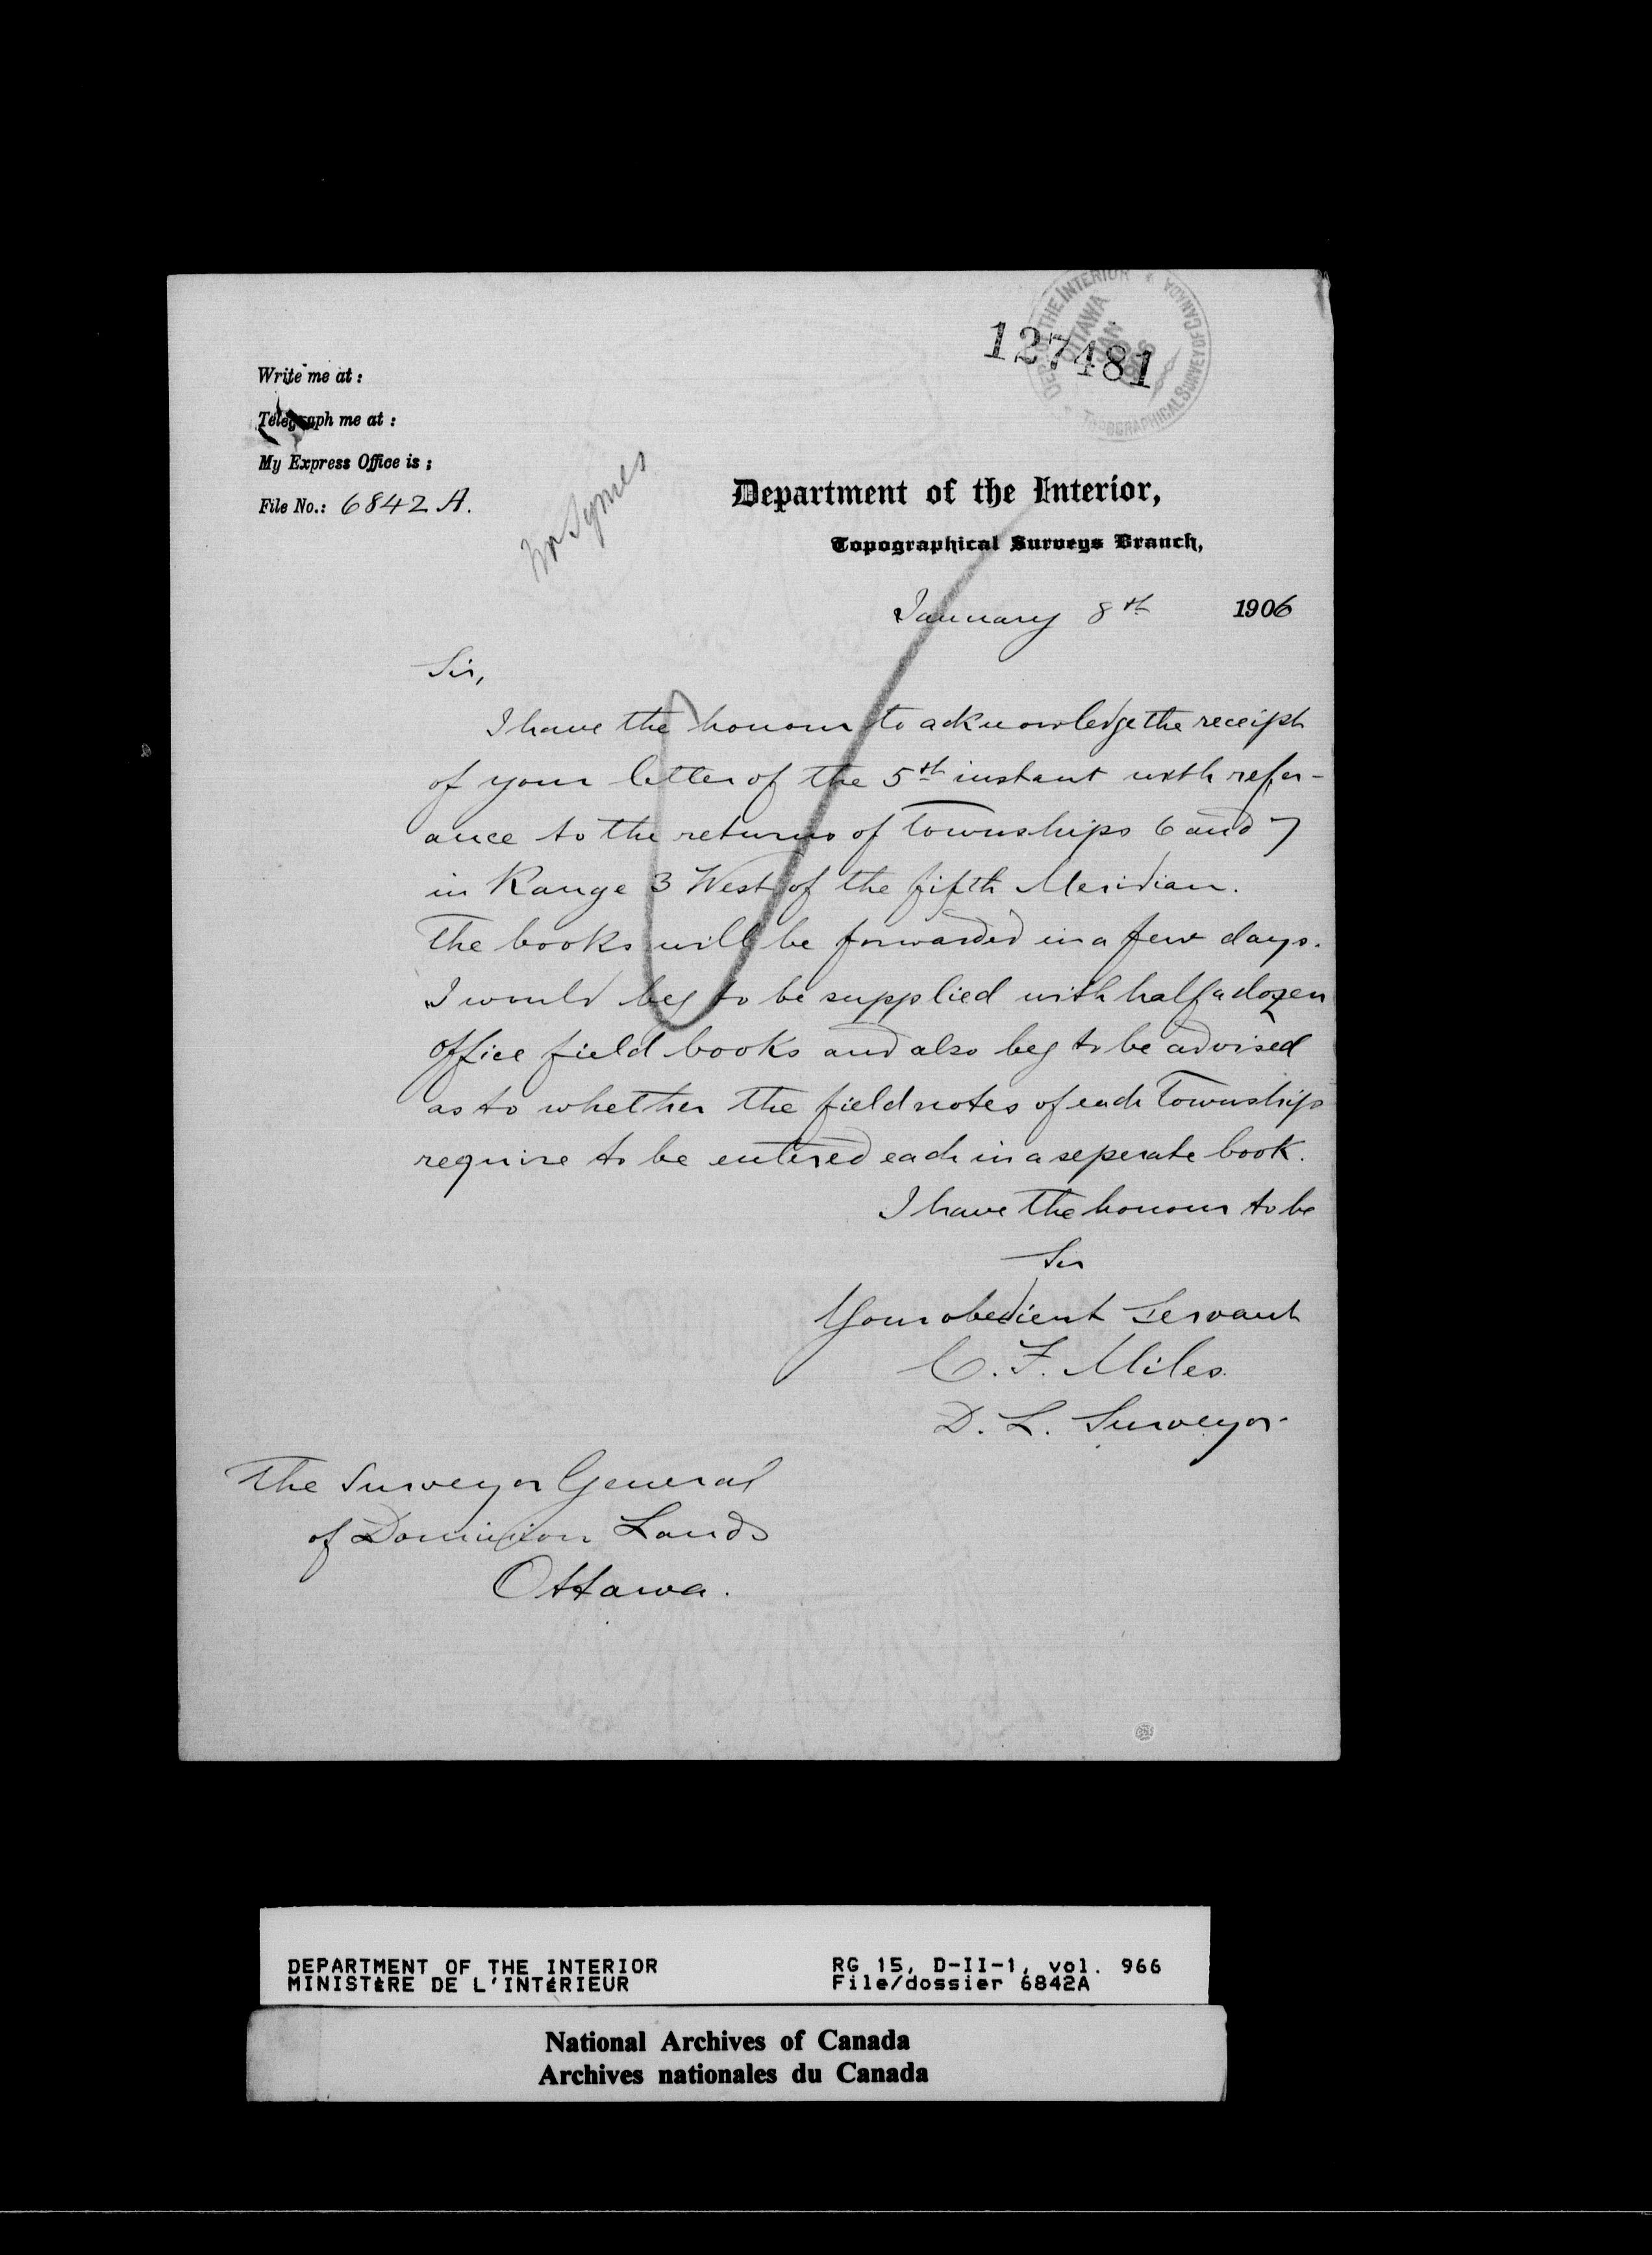 127481
DEPT. OF THE INTERIOR * TOPOGRAPHICAL SURVEY OF CANADA *
OTTAWA
JAN
Write me at :
Telegraph me at :
My Express Office is :
File No.: 6842 A.
Mr Symes
Department of the Interior,
Topographical Surveys Branch,
January 8th 1906
Sir,
I have the honour to acknowledge the receipt
of your letter of the 5th instant with refer-
ance to the returns of Townships 6 and 7
in Range 3 West of the fifth Meridian.
The books will be forwarded in a few days.
I would beg to be supplied with half a dozen
office field books and also beg to be advised
as to whether the field notes of each Townships
require to be entered each in a seperate book.
I have the honour to be
Sir
Your obedient Servant
C. F. Miles.
D. L. Surveyor
The Surveyor General
of Dominion Lands
Ottawa.
DEPARTMENT OF THE INTERIOR RG 15, D-II-1, vol. 966
MINISTÈRE DE L'INTÉRIEUR File/dossier 6842A
National Archives of Canada
Archives nationales du Canada